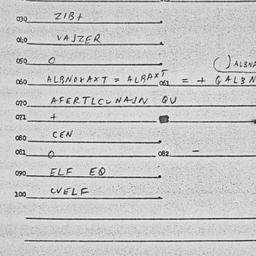 030 ZIB+
040 VAJZER
050 O
() ALBNA
060 ALBNOXAXT = ALBAXT 061 = + QALBN
070 AFERTLCUNAJN QU
071 +
080 CEN
081 O 082 -
090 ELF EQ
100 WELF